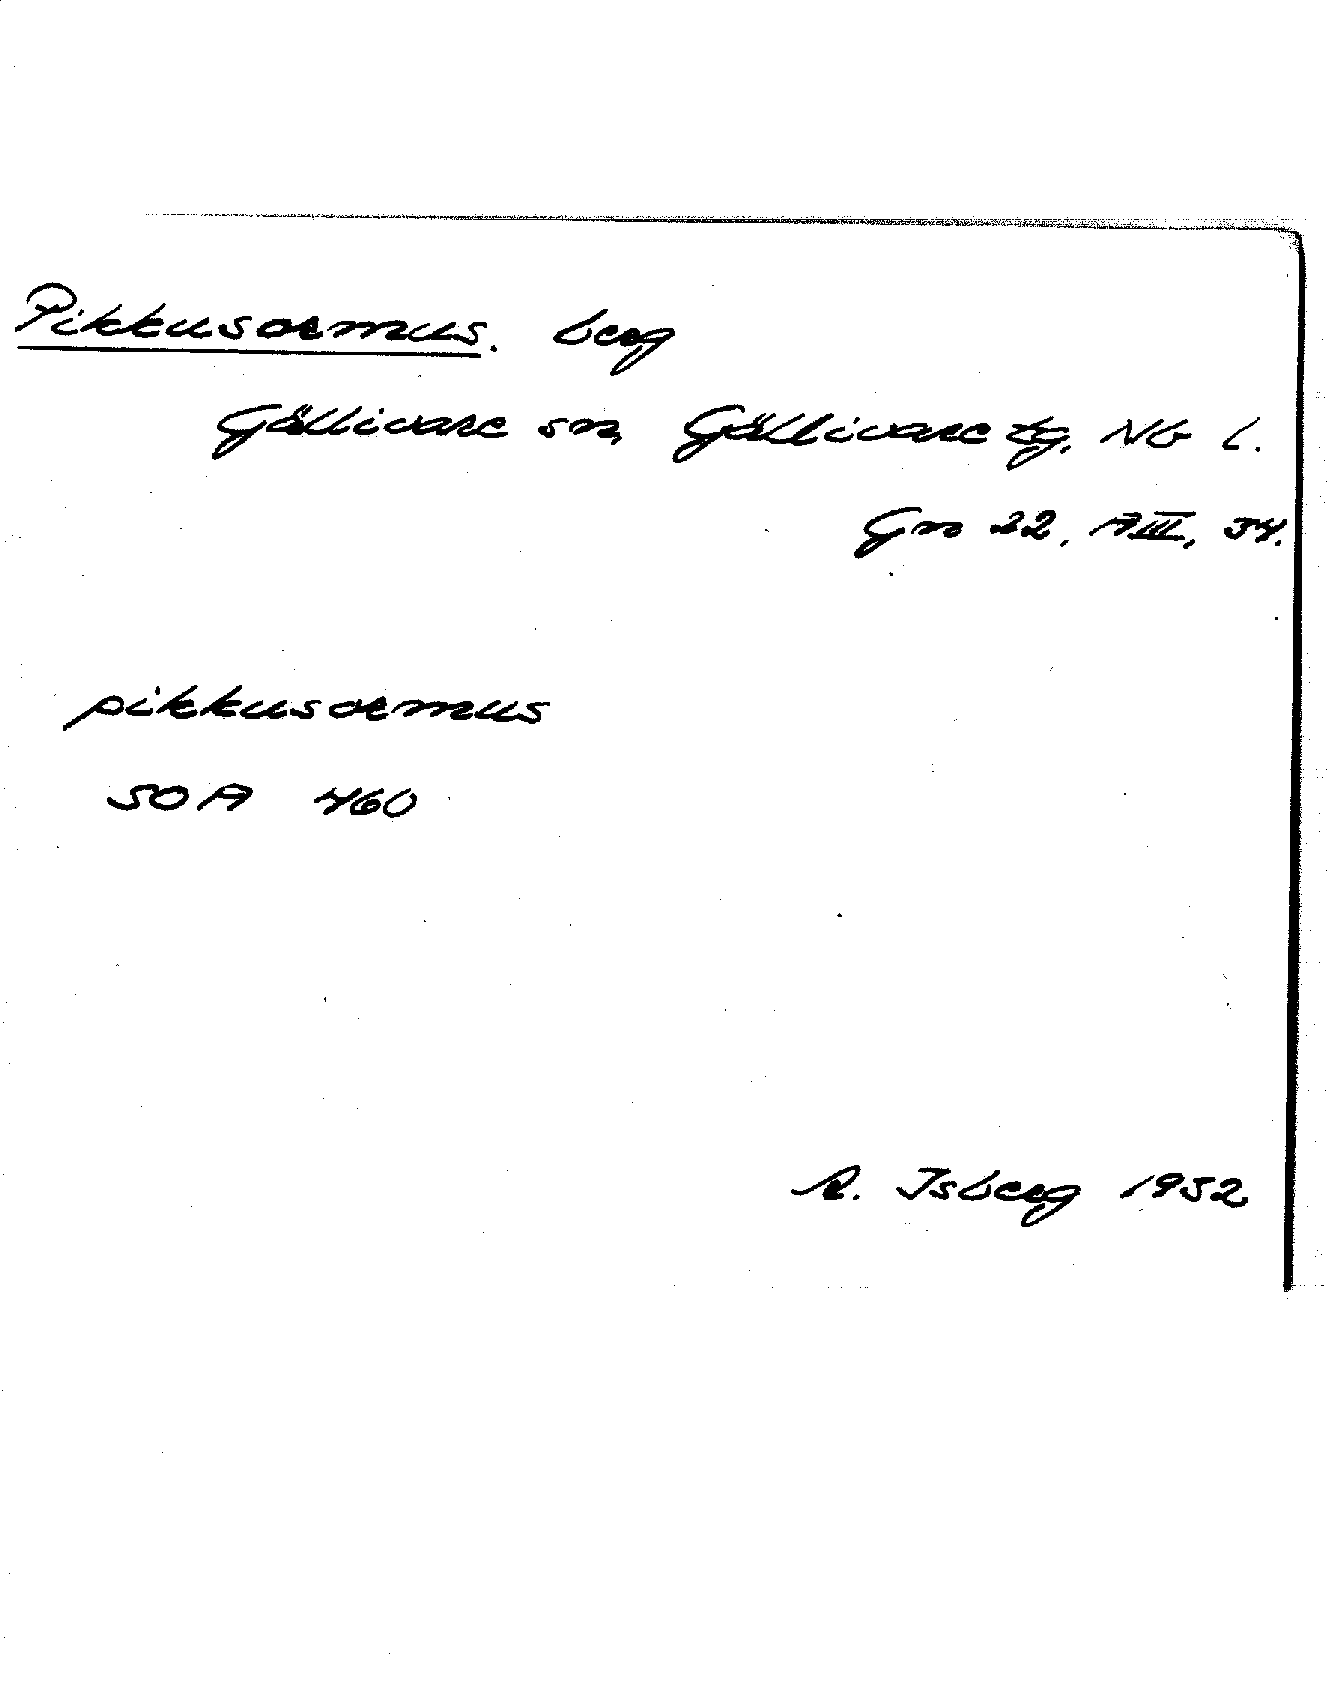 Pikkusormus. berg
Gällivare sn, Gällivare tg, NB l.
Gn 22, A III, 34.
pikkusormus
SOA 460
R. Isberg 1932